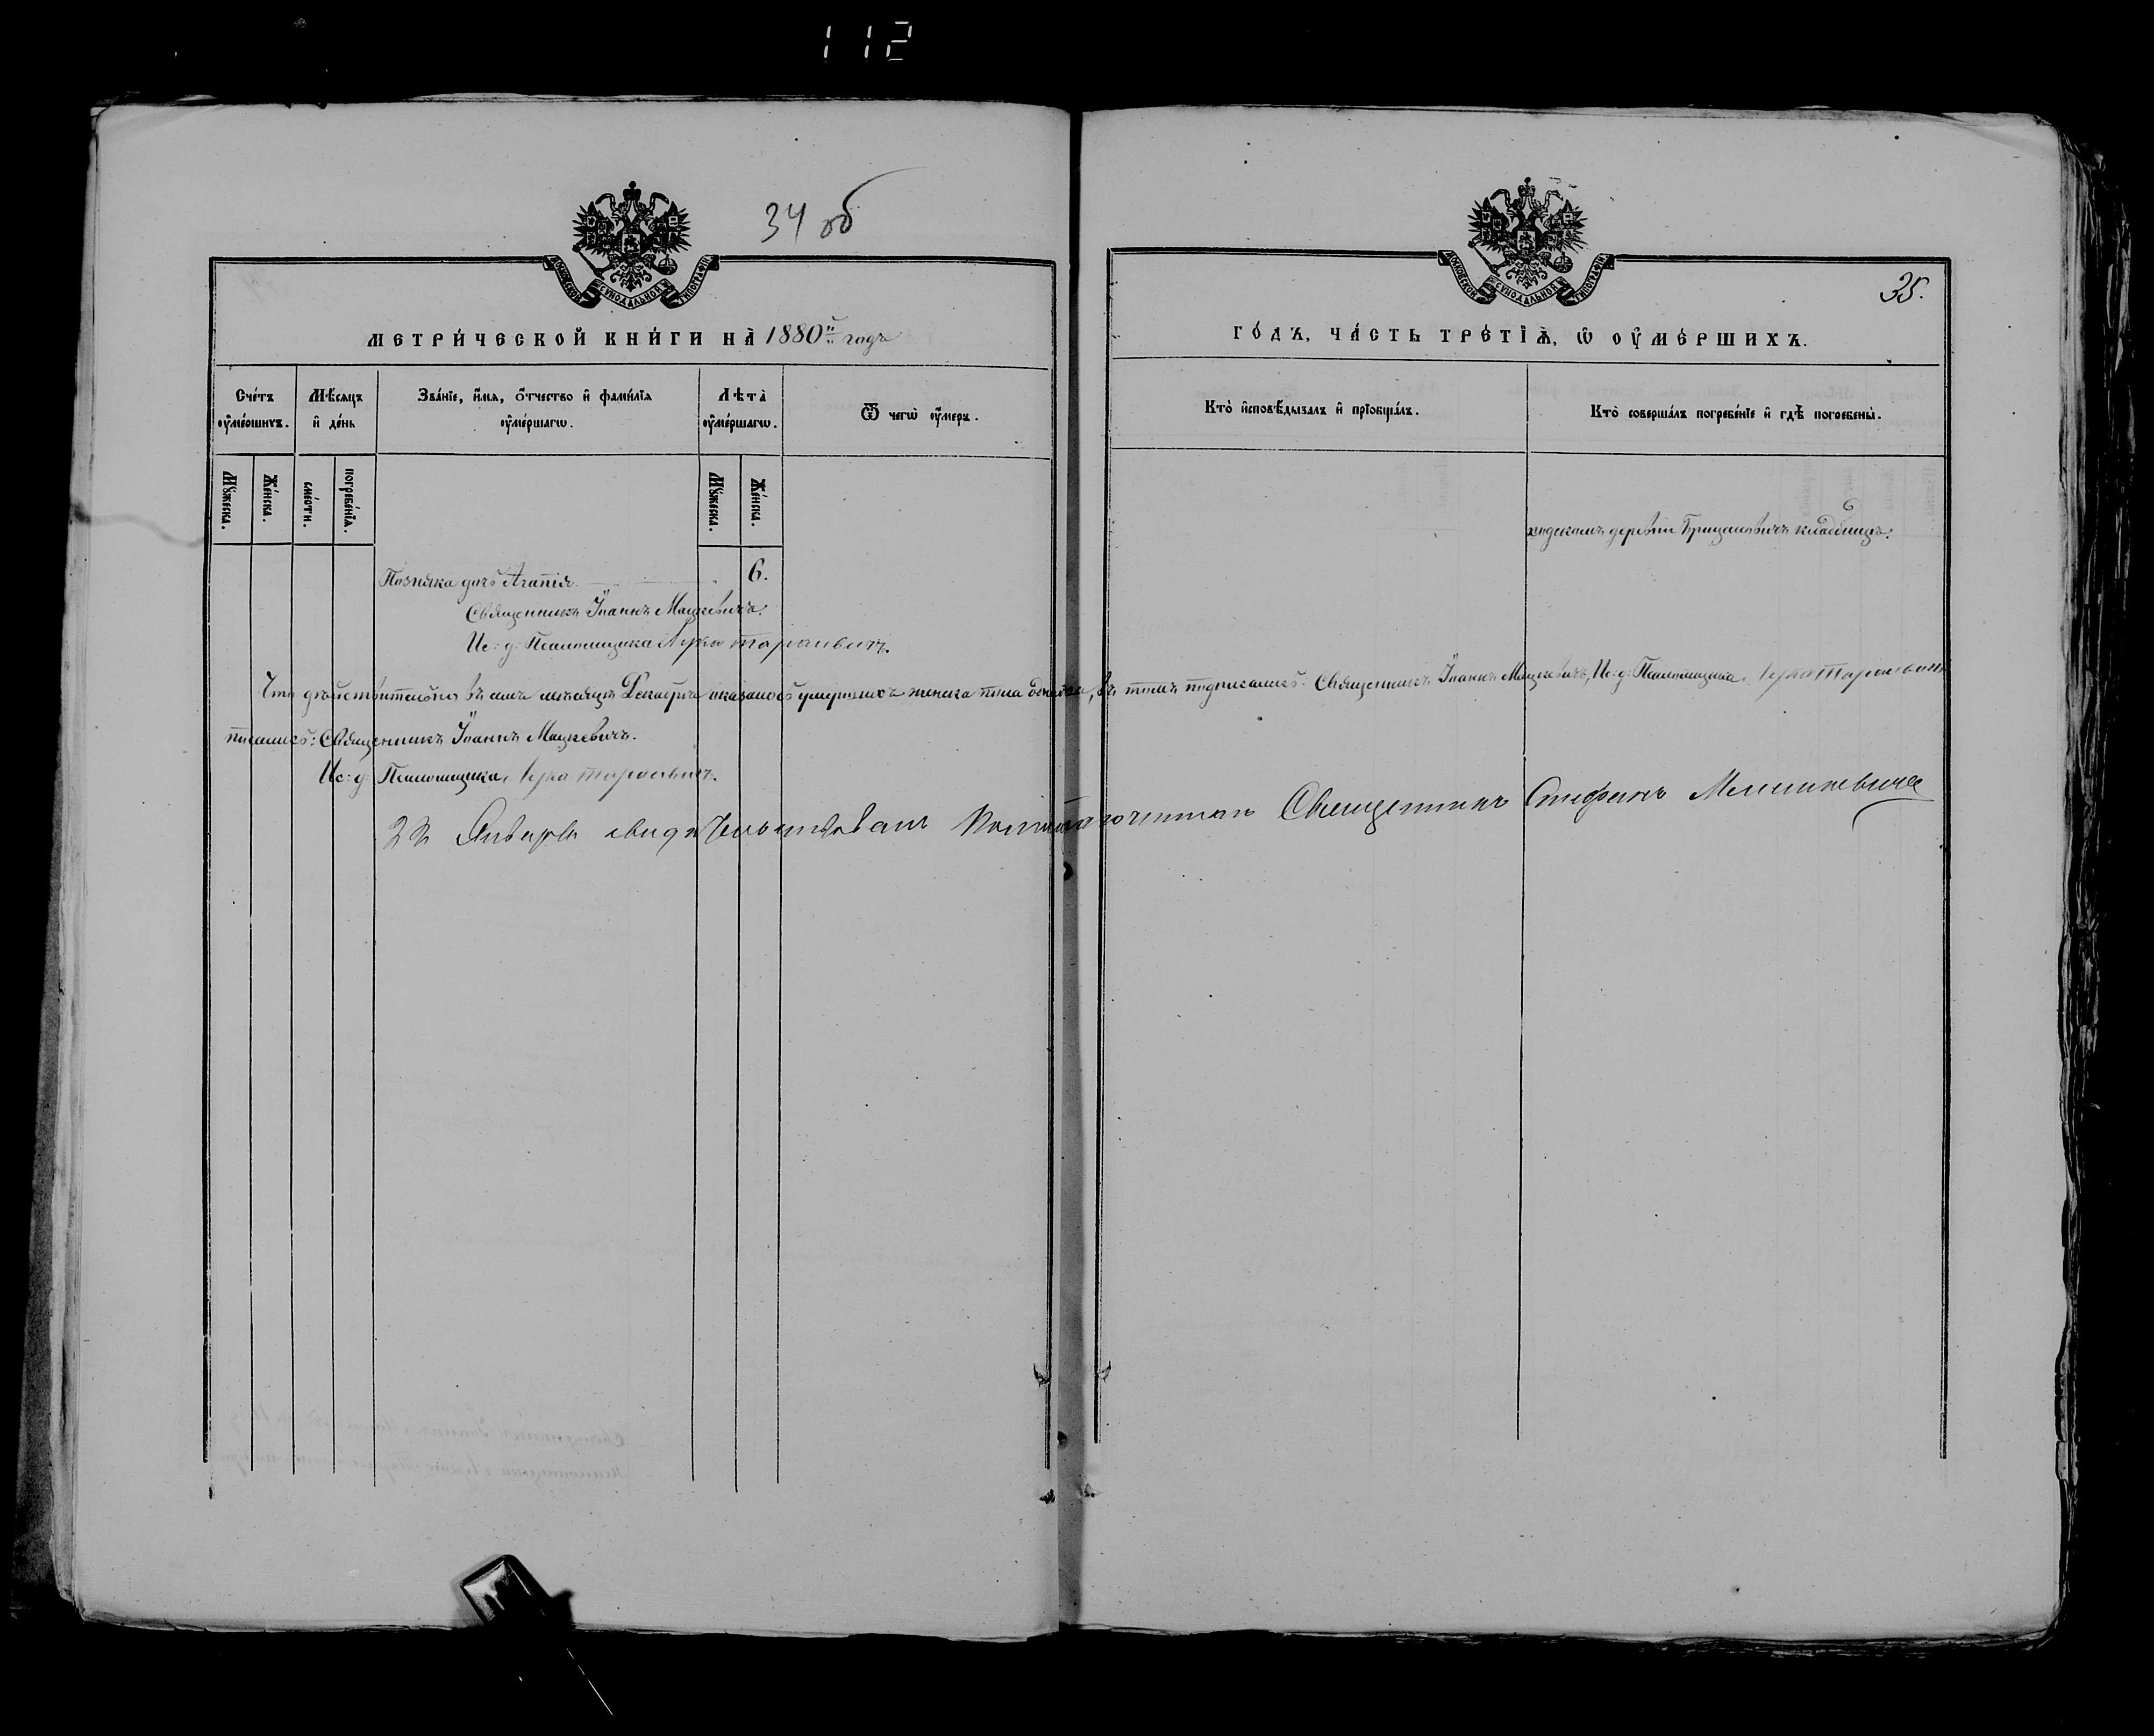 112
34 об
МОСКОВСКОЙ СѴНОДАЛЬНОЙ ТИПОГРАФІИ
МЕТРИ́ЧЕСКОЙ КНИ́ГИ НА̀ 1880й годъ
Сче́тъ оу҆ме́ршихъ.
Мѣ́сяцъ и҆ де́нь
Зва́нїе, и҆́мя, о҆́тчество и҆ фами́лїя оу҆ме́ршагѡ.
Лѣта̀ оу҆ме́ршагѡ.
Ѿ чегѡ̀ оу҆́меръ.
Мꙋ́жеска.
Же́нска.
сме́рти.
погребе́нїѧ.
Мꙋ́жеска.
Же́нска.
Позняка дочь Агапія 6.
Священникъ Іоаннъ Мацкевичъ.
Ис: д: Псаломщика Лука Тарасевичъ.
Что дѣйствительно въ семъ мѣсяцѣ Декабрѣ оказалось умершихъ женска пола, въ томъ подписались: Священникъ Іоаннъ Мацкевичъ, Ис: д: Псаломщика Лука Тарасевичъ
писались: Священникъ Іоаннъ Мацкевичъ.
Ис: д: Псаломщика, Лука Тарасевичъ.
22 Января свидѣтельствовалъ Священникъ Стефанъ
МОСКОВСКОЙ СѴНОДАЛЬНОЙ ТИПОГРАФІИ
35.
ГО́ДЪ, ЧА́СТЬ ТРЕ́ТЇѦ, Ѡ҆ ОУ҆МЕ́РШИХЪ.
Кто̀ и҆сповѣ́дывалъ и҆ прїобща́лъ.
Кто̀ соверша́лъ погребе́нїе и҆ гдѣ̀ погребены̀.
приходскомъ деревни кладбищѣ.